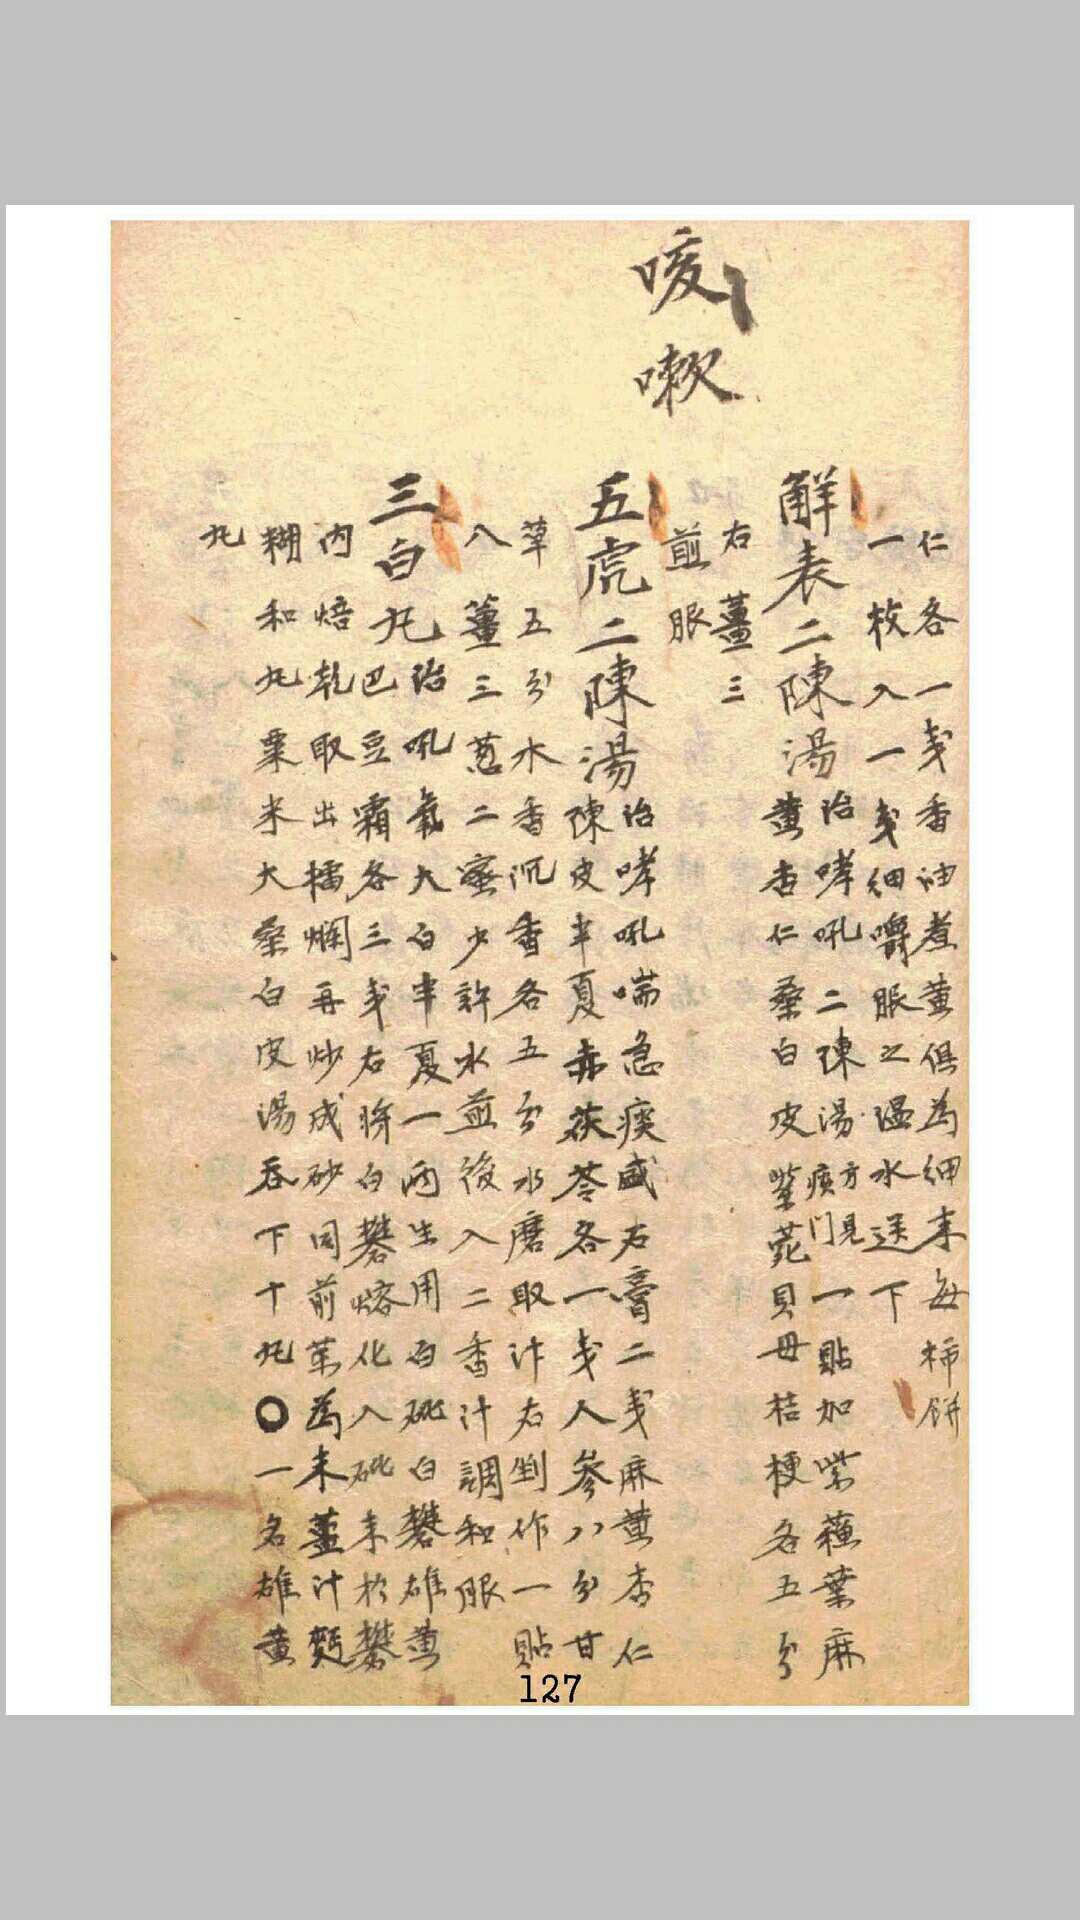 咳嗽
仁各一戔香油煮黃俱為細末每柿餅
一枚入一戔細嚼服之溫水送下
解表二陳湯治哮吼二陳湯方見痰門一貼加紫蘇葉麻
黃杏仁桑白皮紫菀貝母桔梗各五分
右薑三
煎服
五虎二陳湯治哮吼喘急痰盛石膏二戔麻黃杏仁
陳皮半夏赤茯苓各一戔人參八分甘
草五分水香沉香各五分水磨取汁右剉作一貼
入薑三葱二蜜少許水煎後入二香汁調和服
三白丸治吼氣大白半夏一兩生用白砒白礬雄黃
巴豆霜各三戔右將白礬熔化入砒末於礬
內焙乾取出擂爛再炒成砂同前藥為末薑汁麪
糊和丸粟米大桑白皮湯吞下十丸○一名雄黃
丸
127